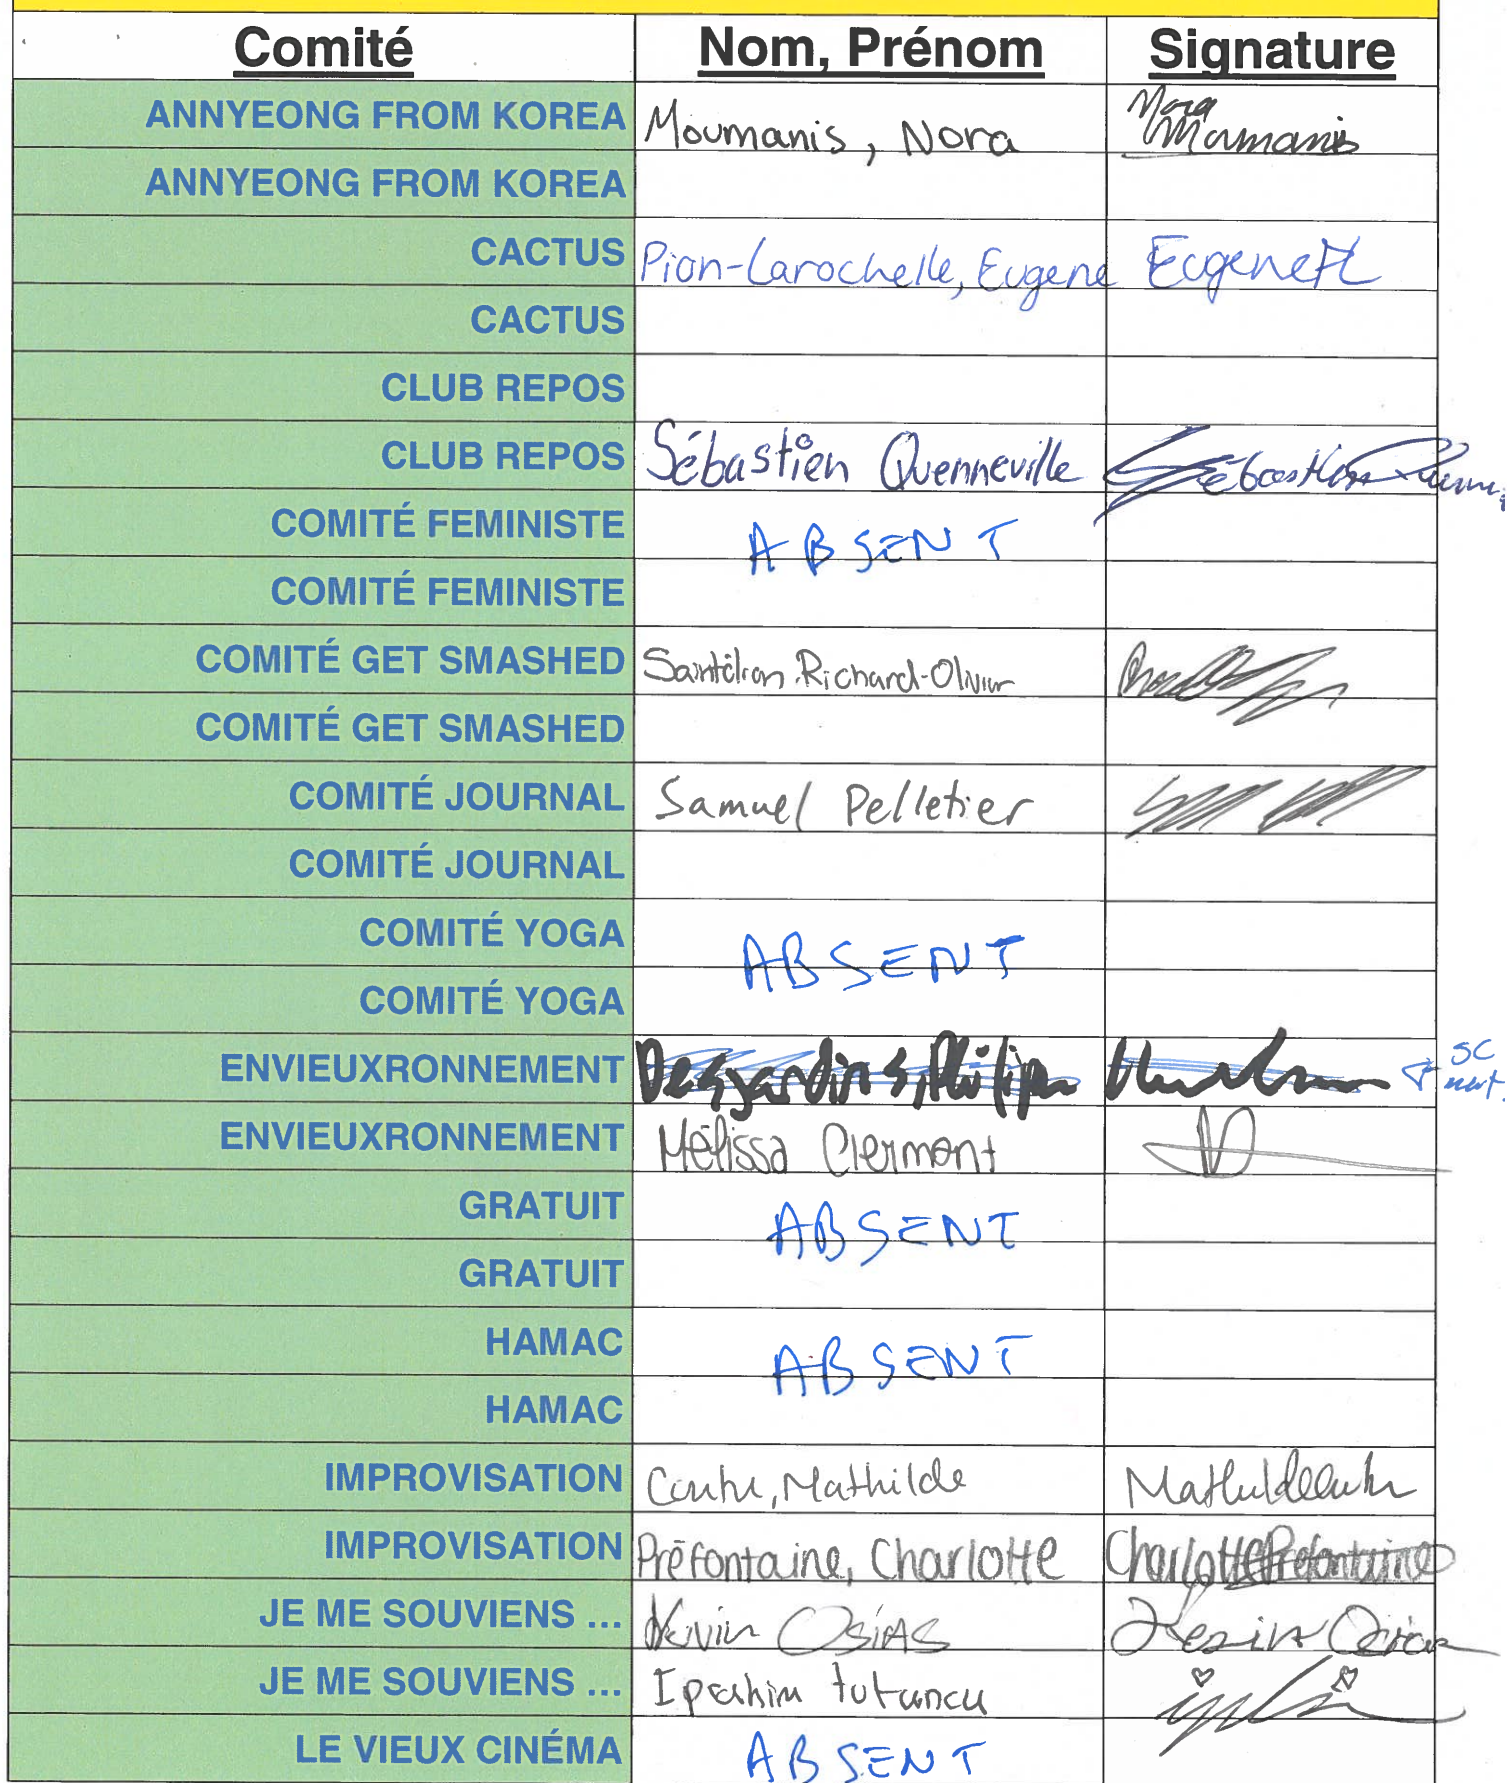 Comité Nom, Prénom Signature
ANNYEONG FROM KOREA Moumanis, Nora Nora Moumanis
ANNYEONG FROM KOREA
CACTUS Pion-Larochelle, Eugene EugenePL
CACTUS
CLUB REPOS
CLUB REPOS Sébastien Quenneville Sébastien
COMITÉ FEMINISTE ABSENT
COMITÉ FEMINISTE
COMITÉ GET SMASHED Richard-Olivier
COMITÉ GET SMASHED
COMITÉ JOURNAL Samuel Pelletier
COMITÉ JOURNAL
COMITÉ YOGA ABSENT
COMITÉ YOGA
ENVIEUXRONNEMENT Desjardins, Philippe
ENVIEUXRONNEMENT Mélissa Clermont
GRATUIT ABSENT
GRATUIT
HAMAC ABSENT
HAMAC
IMPROVISATION Mathilde
IMPROVISATION Préfontaine, Charlotte Charlotte Préfontaine
JE ME SOUVIENS ... Kevin OSIAS Kevin Osias
JE ME SOUVIENS ... tutuncu
LE VIEUX CINÉMA ABSENT